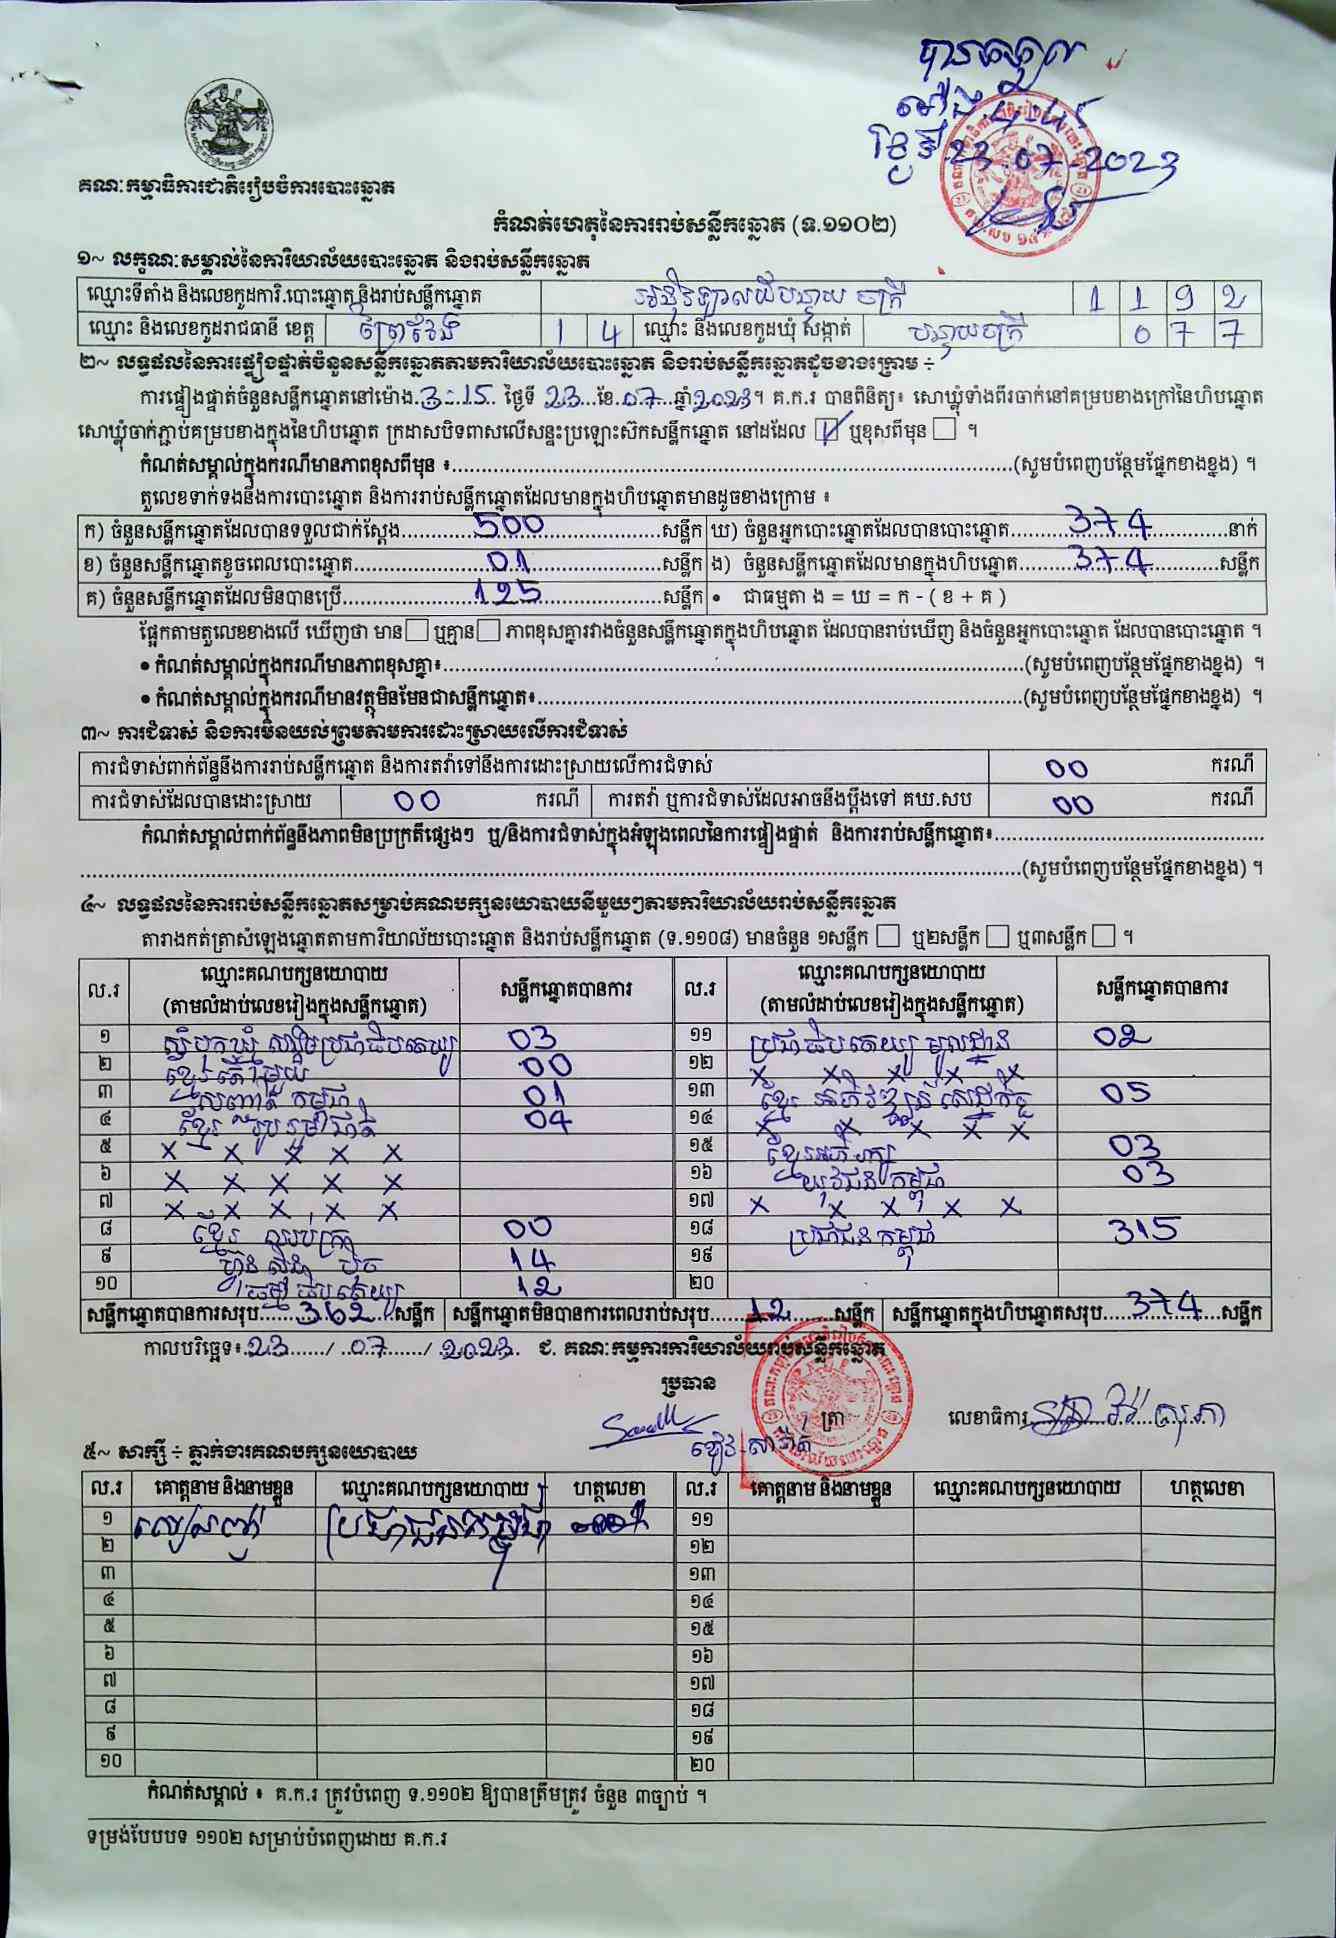 បានឃើញ
ថ្ងៃទី 23.07.2023
គណៈកម្មាធិការជាតិរៀបចំការបោះឆ្នោត
កំណត់ហេតុនៃការរាប់សន្លឹកឆ្នោត (ទ.១១០២)
១~ លក្ខណៈសម្គាល់នៃការិយាល័យបោះឆ្នោត និងរាប់សន្លឹកឆ្នោត
ឈ្មោះទីតាំង និងលេខកូដការិ.បោះឆ្នោត និងរាប់សន្លឹកឆ្នោត 1 1 9 2
ឈ្មោះ និងលេខកូដរាជធានី ខេត្ត ព្រៃវែង 1 4 ឈ្មោះ និងលេខកូដឃុំ សង្កាត់ 0 7 7
២~ លទ្ធផលនៃការផ្ទៀងផ្ទាត់ចំនួនសន្លឹកឆ្នោតតាមការិយាល័យបោះឆ្នោត និងរាប់សន្លឹកឆ្នោតដូចខាងក្រោម ÷
ការផ្ទៀងផ្ទាត់ចំនួនសន្លឹកឆ្នោតនៅម៉ោង.3:15. ថ្ងៃទី 23...ខែ.07...ឆ្នាំ2023។ គ.ក.រ បានពិនិត្យ៖ សោឃ្លុំទាំងពីរចាក់នៅគម្របខាងក្រៅនៃហិបឆ្នោត
សោឃ្លុំចាក់ភ្ជាប់គម្របខាងក្នុងនៃហិបឆ្នោត ក្រដាសបិទពាសលើសន្ទះប្រឡោះស៊កសន្លឹកឆ្នោត នៅដដែល ☑ ឬខុសពីមុន ☐ ។
កំណត់សម្គាល់ក្នុងករណីមានភាពខុសពីមុន ៖...(សូមបំពេញបន្ថែមផ្នែកខាងខ្នង) ។
តួលេខទាក់ទងនឹងការបោះឆ្នោត និងការរាប់សន្លឹកឆ្នោតដែលមានក្នុងហិបឆ្នោតមានដូចខាងក្រោម ៖
ក) ចំនួនសន្លឹកឆ្នោតដែលបានទទួលជាក់ស្តែង...500...សន្លឹក ឃ) ចំនួនអ្នកបោះឆ្នោតដែលបានបោះឆ្នោត...374...នាក់
ខ) ចំនួនសន្លឹកឆ្នោតខូចពេលបោះឆ្នោត...01...សន្លឹក ង) ចំនួនសន្លឹកឆ្នោតដែលមានក្នុងហិបឆ្នោត...374...សន្លឹក
គ) ចំនួនសន្លឹកឆ្នោតដែលមិនបានប្រើ...125...សន្លឹក • ជាធម្មតា ង = ឃ = ក - ( ខ + គ )
ផ្អែកតាមតួលេខខាងលើ ឃើញថា មាន☐ ឬគ្មាន☐ ភាពខុសគ្នារវាងចំនួនសន្លឹកឆ្នោតក្នុងហិបឆ្នោត ដែលបានរាប់ឃើញ និងចំនួនអ្នកបោះឆ្នោត ដែលបានបោះឆ្នោត ។
• កំណត់សម្គាល់ក្នុងករណីមានភាពខុសគ្នា៖...(សូមបំពេញបន្ថែមផ្នែកខាងខ្នង) ។
• កំណត់សម្គាល់ក្នុងករណីមានវត្ថុមិនមែនជាសន្លឹកឆ្នោត៖...(សូមបំពេញបន្ថែមផ្នែកខាងខ្នង) ។
៣~ ការជំទាស់ និងការមិនយល់ព្រមតាមការដោះស្រាយលើការជំទាស់
ការជំទាស់ពាក់ព័ន្ធនឹងការរាប់សន្លឹកឆ្នោត និងការតវ៉ាទៅនឹងការដោះស្រាយលើការជំទាស់ 00 ករណី
ការជំទាស់ដែលបានដោះស្រាយ 00 ករណី ការតវ៉ា ឬការជំទាស់ដែលអាចនឹងប្តឹងទៅ គឃ.សប 00 ករណី
កំណត់សម្គាល់ពាក់ព័ន្ធនឹងភាពមិនប្រក្រតីផ្សេងៗ ឬ/និងការជំទាស់ក្នុងអំឡុងពេលនៃការផ្ទៀងផ្ទាត់ និងការរាប់សន្លឹកឆ្នោត៖...
...(សូមបំពេញបន្ថែមផ្នែកខាងខ្នង) ។
៤~ លទ្ធផលនៃការរាប់សន្លឹកឆ្នោតសម្រាប់គណបក្សនយោបាយនីមួយៗតាមការិយាល័យរាប់សន្លឹកឆ្នោត
តារាងកត់ត្រាសំឡេងឆ្នោតតាមការិយាល័យបោះឆ្នោត និងរាប់សន្លឹកឆ្នោត (ទ.១១០៨) មានចំនួន ១សន្លឹក ☐ ឬ២សន្លឹក ☐ ឬ៣សន្លឹក ☐ ។
ល.រ ឈ្មោះគណបក្សនយោបាយ សន្លឹកឆ្នោតបានការ ល.រ ឈ្មោះគណបក្សនយោបាយ សន្លឹកឆ្នោតបានការ
(តាមលំដាប់លេខរៀងក្នុងសន្លឹកឆ្នោត) (តាមលំដាប់លេខរៀងក្នុងសន្លឹកឆ្នោត)
១ សំបុកឃ្មុំ សង្គមប្រជាធិបតេយ្យ 03 ១១ ប្រជាធិបតេយ្យ មូលដ្ឋាន 02
២ ខ្មែរតែមួយ 00 ១២ x x x x x
៣ សញ្ជាតិ កម្ពុជា 01 ១៣ ខ្មែរ អភិវឌ្ឍន៍ សេដ្ឋកិច្ច 05
៤ ខ្មែរ រួបរួមជាតិ 04 ១៤ x x x x x
៥ x x x x x ១៥ ខ្មែរអភិរក្ស 03
៦ x x x x x ១៦ យុវជន កម្ពុជា 03
៧ x x x x x ១៧ x x x x x
៨ ខ្មែរ ឈប់ក្រ 00 ១៨ ប្រជាជន កម្ពុជា 315
៩ ហ្វ៊ុនស៊ិនប៉ិច 14 ១៩
១០ ធម្មាធិបតេយ្យ 12 ២០
សន្លឹកឆ្នោតបានការសរុប...362...សន្លឹក សន្លឹកឆ្នោតមិនបានការពេលរាប់សរុប...12...សន្លឹក សន្លឹកឆ្នោតក្នុងហិបឆ្នោតសរុប...374...សន្លឹក
កាលបរិច្ឆេទ៖.23....../ .07......./ 2023. ជ. គណៈកម្មការការិយាល័យរាប់សន្លឹកឆ្នោត
ប្រធាន
ត្រា
លេខាធិការ
៥~ សាក្សី ÷ ភ្នាក់ងារគណបក្សនយោបាយ
ល.រ គោត្តនាម និងនាមខ្លួន ឈ្មោះគណបក្សនយោបាយ ហត្ថលេខា ល.រ គោត្តនាម និងនាមខ្លួន ឈ្មោះគណបក្សនយោបាយ ហត្ថលេខា
១ ប្រជាជនកម្ពុជា ១១
២ ១២
៣ ១៣
៤ ១៤
៥ ១៥
៦ ១៦
៧ ១៧
៨ ១៨
៩ ១៩
១០ ២០
កំណត់សម្គាល់ ៖ គ.ក.រ ត្រូវបំពេញ ទ.១១០២ ឱ្យបានត្រឹមត្រូវ ចំនួន ៣ច្បាប់ ។
ទម្រង់បែបបទ ១១០២ សម្រាប់បំពេញដោយ គ.ក.រ